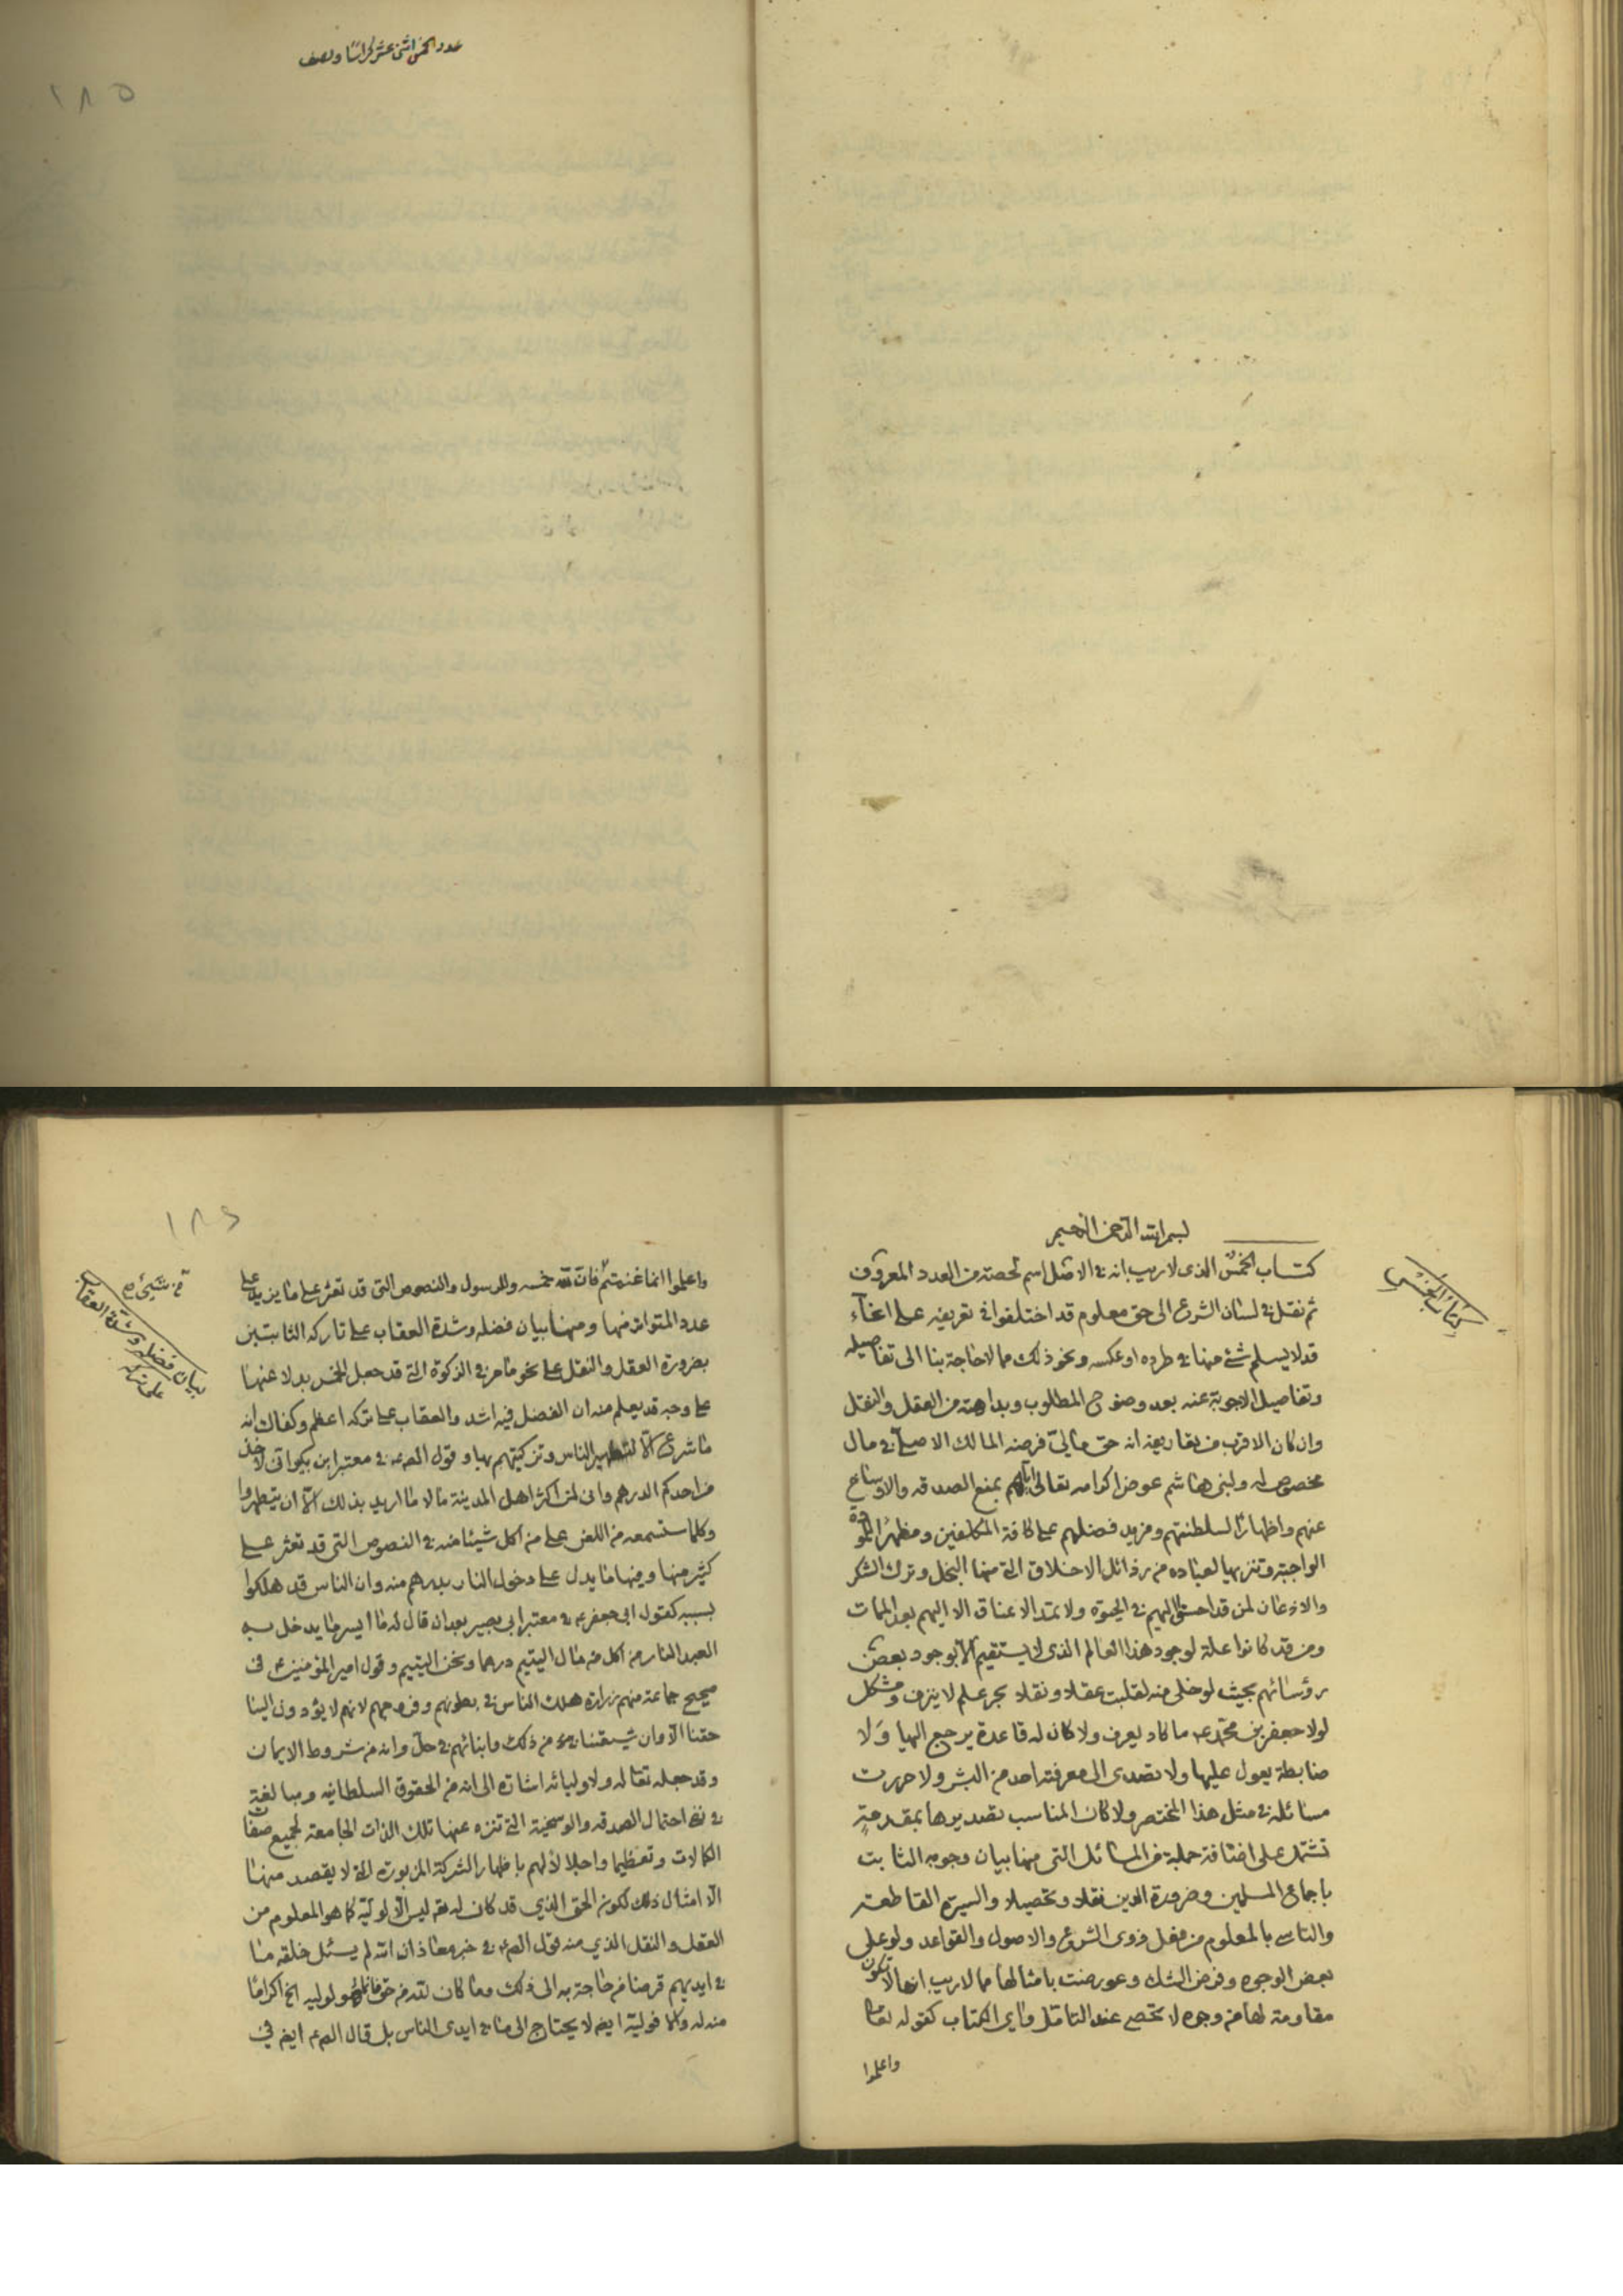 عدد الخمس اثنى عشر كراسًا ونصف
١٨٥
بسم الله الرحمن الرحيم
كتاب الخمس
كتاب الخمس الذى لا ريب انه فى الاصل اسم لحصته من العدد المعروف
ثم نقل فى لسان الشرع الى حق معلوم قد اختلفوا فى تعريفه على انحآء
قد لا يسلم شئ منها فى طرده او عكسه ونحو ذلك مما لا حاجة بنا الى تفاصيله
وتفاصيل الاجوبة عنه بعد وضوح المطلوب وبداهته من العقل والنقل
وان كان الاقرب من تعاريفه انه حق مالىّ فرضه المالك الاصلى فى مال
مخصوص له ولبنى هاشم عوض اكرامه تعالى اياهم بمنع الصدقه والاوساخ
عنهم واظهارًا لسلطنتهم ومزيد فضلهم على كافة المكلفين ومظهرًا للمودة
الواجبة وتنزيها لعباده من رذائل الاخلاق التى منها البخل وترك الشكر
والاذعان لمن قد احستاق اليهم فى الحيوة ولا تمتد الاعناق الا اليهم بعد الممات
ومن قد كانوا علة لوجود هذا العالم الذى لا يستقيم الا بوجود بعض
رؤسائهم بحيث لو خلى منه لقلبت عقلا ونقلا بحر علم لا ينزف ومشكل
لولا جعفر بن محمد ع ما كاد يعرف ولا كان له قاعدة يرجع اليها ولا
ضابطة يعول عليها ولا تصدى الى معرفته احد من البشر ولا حررت
مسائله فى مثل هذا المختصر ولا كان المناسب تصديرها بمقدمةٍ
تشتمل على اضافة جملة من المسائل التى منها بيان وجوبه الثابت
باجماع المسلمين وضرورة الدين نقلا وتحصيلا والسيرة القاطعة
والتاسى بالمعلوم من فعل ذوى الشرع والاصول والقواعد ولو على
بعض الوجوه وفرض الشك وعورضت بامثالها مما لا ريب انها لا تكون
مقاومة لها من وجوه لا تخفى عند التامل واى الكتاب كقوله تعالى
واعلموا
١٨٦
واعلموا انما غنمتم فان لله خمسه وللرسول والنصوص التى قد تعثر على ما يزيد على
عدد المتواتر منها ومنها بيان فضله وشدة العقاب على تاركه الثابتين
بضرورة العقل والنقل على نحو ما مر فى الزكوة التى قد جعل الخمس بدلا عنها
على وجه قد يعلم منه ان الفضل فيه اشد والعقاب على تركه اعظم وكفاك انه
ما شرع الا لتطهير الناس وتزكيتهم بها وقول الصع فى معتبر ابن بكير انى لاخذ
من احدكم الدرهم وانى لمن اكثر اهل المدينة مالا ما اريد بذلك الا ان يتطهروا
وكلما ستسمعه من اللعن على من اكل شيئا منه فى النصوص التى قد تعثر على
كثير منها ومنها ما يدل على دخول النار بدرهم منه وان الناس قد هلكوا
بسببه كقول ابى جعفر ع فى معتبر ابى بصير بعد ان قال له ما ايسر ما يدخل به
العبد النار من اكل من مال اليتيم درهما ونحن اليتيم وقول امير المؤمنين ع فى
صحيح جماعة منهم زرارة هلك الناس فى بطونهم وفروجهم لانهم لا يؤدون الينا
حقنا الا وان شيعتنا من ذلك وابنائهم فى حل وانه من شروط الايمان
وقد جعله تعا له ولاوليائه اشارة الى انه من الحقوق السلطانيه ومبالغة
فى نفى احتمال الصدقه والوسخية التى تنزه عنها تلك الذات الجامعة لجميع صفات
الكمالات وتعظيما واجلالا لهم باظهار الشركة المزبورة التى لا يقصد منها
الا امثال ذلك ككون الحق الذي قد كان لله ليس الا لوليّه كما هو المعلوم من
العقل والنقل الذي منه قول الصع فى خبر معاذ ان الله لم يسئل خلقه مما
فى ايديهم قرضا من حاجة به الى ذلك وما كان لله من حق فانما هو لوليه الخ اكراما
منه له وكما فوليّه ايضا لا يحتاج الى ما فى ايدى الناس بل قال الصع ايضا فى
بيان فضله وشدة العقاب
على تركه